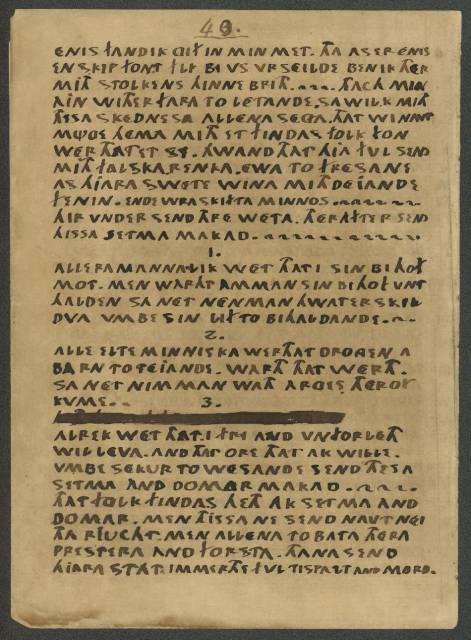 40.
ENIS FANDIK IN MIN THA AS ER ENIS
EN SKIP BI US VRSEILDE BENIK THER
MITH STOLKENS HINNE BRITH. THACH MIN
AIN WITHER FARA TO LETANDE. SA WILK MITH
THISSA SKEDNESSA ALLENA SEGA. THAT WI NAVT
MUGE HEMA MITH ET FINDAS FOLK FON
WER THAT ET SI. HWAND THAT HJA FUL SEND
MITH FALSKA RENKA. EWA TO FRESANE
AS HJARA SWETE WINA MITH DEIANDE
FENIN. ENDE WRA SKRIFTA MINNOS.
HIR UNDER SEND THRE WETA. THER AFTER SEND
THISSA SETMA MAKAD.
1.
ALLERA MANNALIK WET THAT I SIN BIHOF
MOT. MEN WARTH AMMAN SIN BIHOF UNT
HALDEN SA NET NEN MAN HWAT ER SKIL
DVA VMBE SIN LIF TO BIHALDANDE.
2.
ALLE ELTE MINNISKA WERTHAT DRONGEN A
BARN TO TEIANDE. WARTH THAT WERTH.
SA NET NIMMAN WATH ARGES THEROF
KUME.
3.
ALREK WET THAT I FRI AND VNFORLETH
WIL LEVA. AND THAT ORE THAT AK WILLE.
VMBE SEKUR TO WESANDE SEND THESA
SETMA AND DOMAR MAKAD.
THAT FOLK FINDAS HETH AK SETMA AND
DOMAR. MEN THISSA NE SEND NAVT NEI
THA RIUCHT. MEN ALLENA TO BATA THERA
PRESTERA AND FORSTA. THANA SEND
HJARA STAT IMMERTHE FUL TISPALT AND MORD.